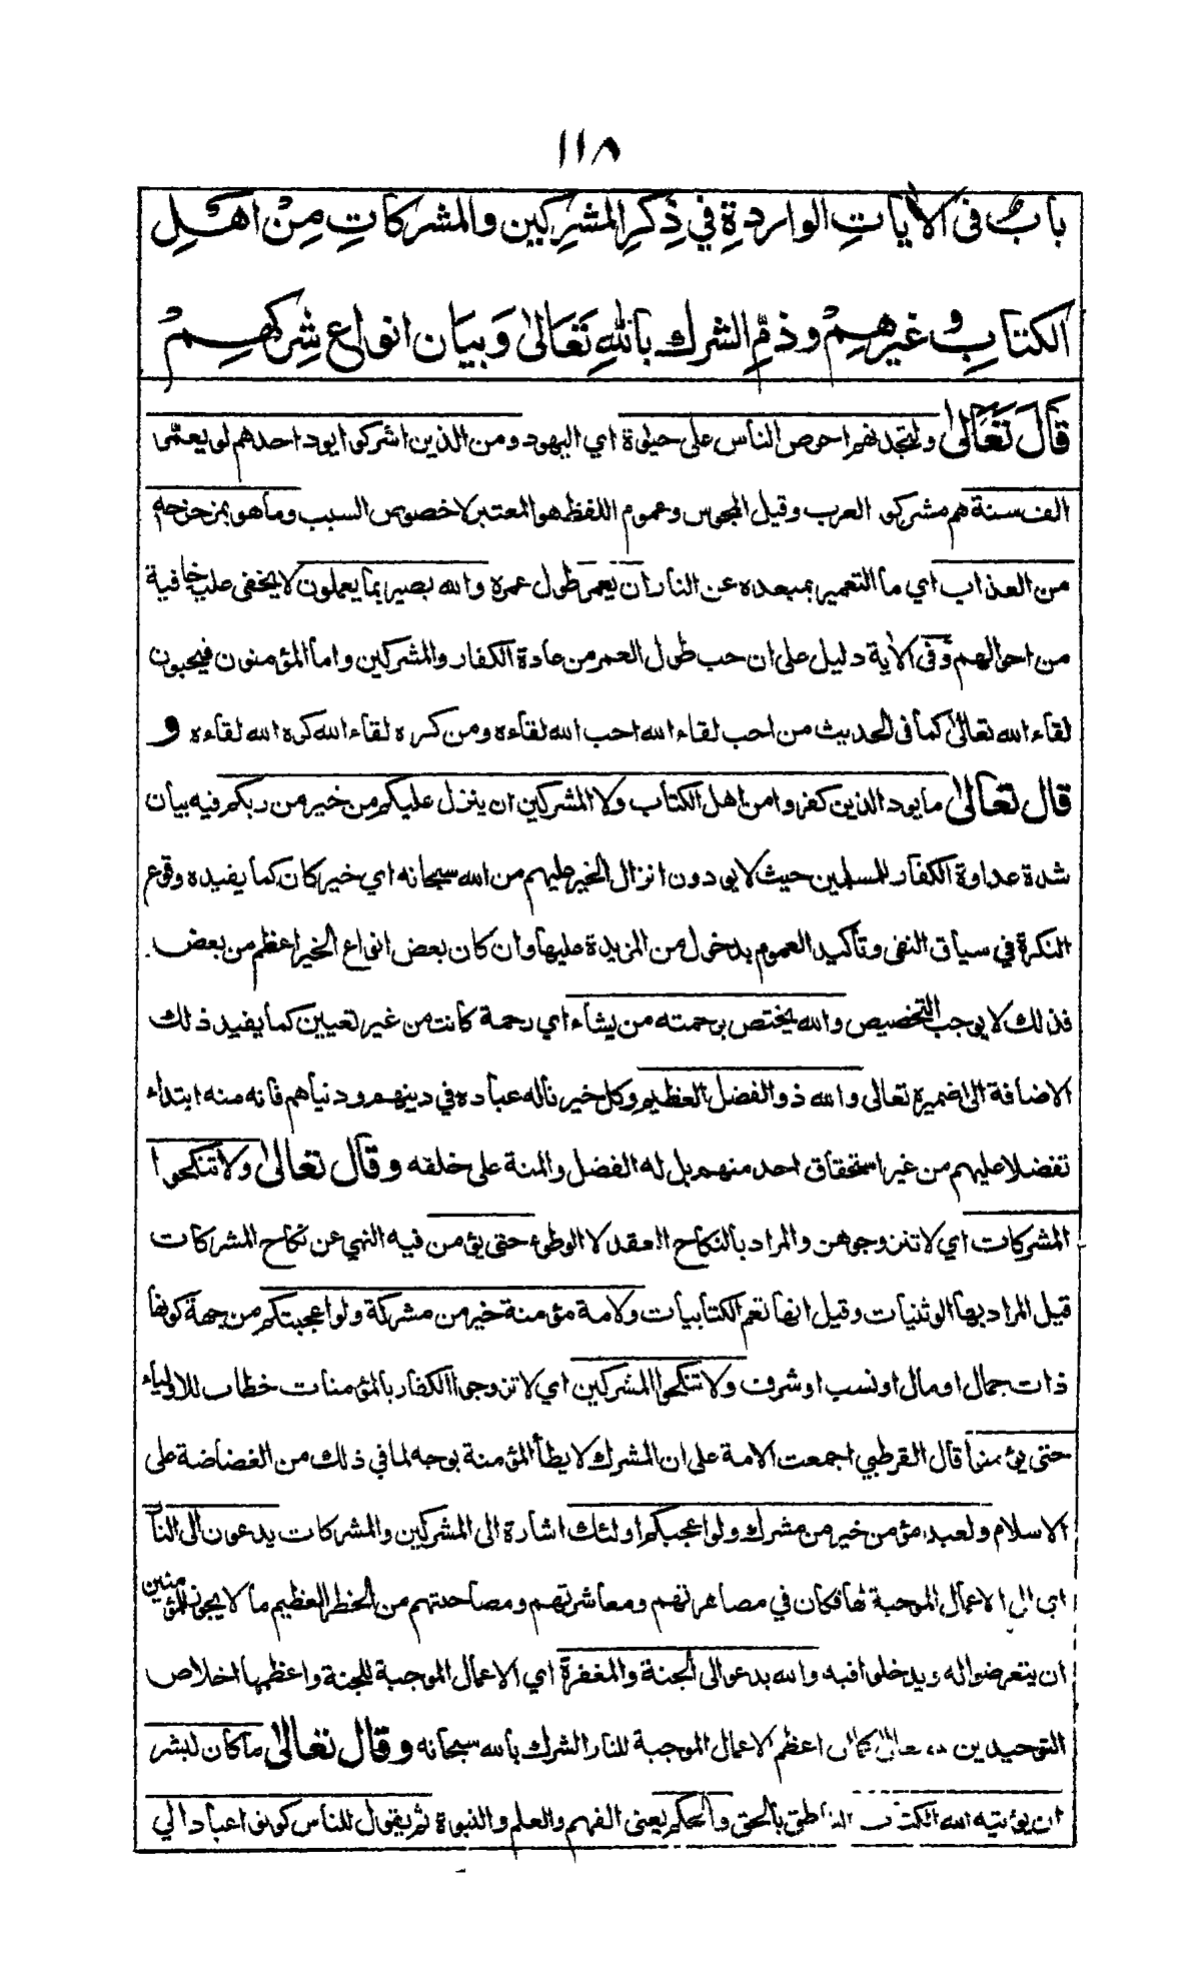 ١١٨
بابٌ في الآيَاتِ الواردةِ في ذِكرِ المشرِكين والمشركَاتِ مِنْ اهْلِ
الكتابِ وغيرِهِمْ وذمِّ الشرك باللهِ تَعَالىٰ وَبيَان انواع شِركهِمْ
قَالَ تَعَالىٰ ولتجدنهم احرص الناس على حيٰوة اي اليهود ومن الذين اشركوا يود احدهم لو يعمّر
الف سنة هم مشركو العرب وقيل المجوس وعموم اللفظ هو المعتبر لا خصوص السبب وما هو بمزحزحه
من العذاب اي ما التعمير بمبعده عن النار ان يعمر طول عمره والله بصير بما يعملون لا يخفى عليه خافية
من احوالهم وفي الآية دليل على ان حب طول العمر من عادة الكفار والمشركين واما المؤمنون فيحبون
لقاء الله تعالىٰ كما في الحديث من احب لقاء الله احب الله لقاءه ومن كره لقاء الله كره الله لقاءه و
قال تعالىٰ ما يود الذين كفروا من اهل الكتاب ولا المشركين ان ينزل عليكم من خير من ربكم فيه بيان
شدة عداوة الكفار للمسلمين حيث لا يودون انزال الخير عليهم من الله سبحانه اي خير كان كما يفيده وقوع
النكرة في سياق النفي وتأكيد العموم بدخول من المزيدة عليها وان كان بعض انواع الخير اعظم من بعض
فذلك لا يوجب التخصيص والله يختص برحمته من يشاء اي رحمة كانت من غير تعيين كما يفيد ذلك
الاضافة الى ضميره تعالى والله ذو الفضل العظيم وكل خير ناله عباده في دينهم ودنياهم فانه منه ابتداء
تفضلا عليهم من غير استحقاق احد منهم بل له الفضل والمنة على خلقه وقال تعالىٰ ولا تنكحوا
المشركات اي لا تتزوجوهن والمراد بالنكاح العقد لا الوطء حتى يؤمن فيه النهي عن نكاح المشركات
قيل المراد بها الوثنيات وقيل انها تعم الكتابيات ولامة مؤمنة خير من مشركة ولو اعجبتكم من جهة كونها
ذات جمال او مال او نسب او شرف ولا تنكحوا المشركين اي لا تزوجوا الكفار بالمؤمنات خطاب للاولياء
حتى يؤمنوا قال القرطبي اجمعت الامة على ان المشرك لا يطأ المؤمنة بوجه لما في ذلك من الغضاضة على
الاسلام ولعبد مؤمن خير من مشرك ولو اعجبكم اولئك اشارة الى المشركين والمشركات يدعون الى النار
اي الى الاعمال الموجبة لها فكان في مصاهرتهم ومعاشرتهم ومصاحبتهم من الخطر العظيم ما لا يجوز للمؤمنين
ان يتعرضوا له ويدخلوا فيه والله يدعو الى الجنة والمغفرة اي الاعمال الموجبة للجنة واعظمها اخلاص
التوحيد كما ان اعظم الاعمال الموجبة للنار الشرك بالله سبحانه وقال تعالىٰ ما كان لبشر
ان يؤتيه الله الكتاب الناطق بالحق والحكم يعني الفهم والعلم والنبوة ثم يقول للناس كونوا عبادا لي